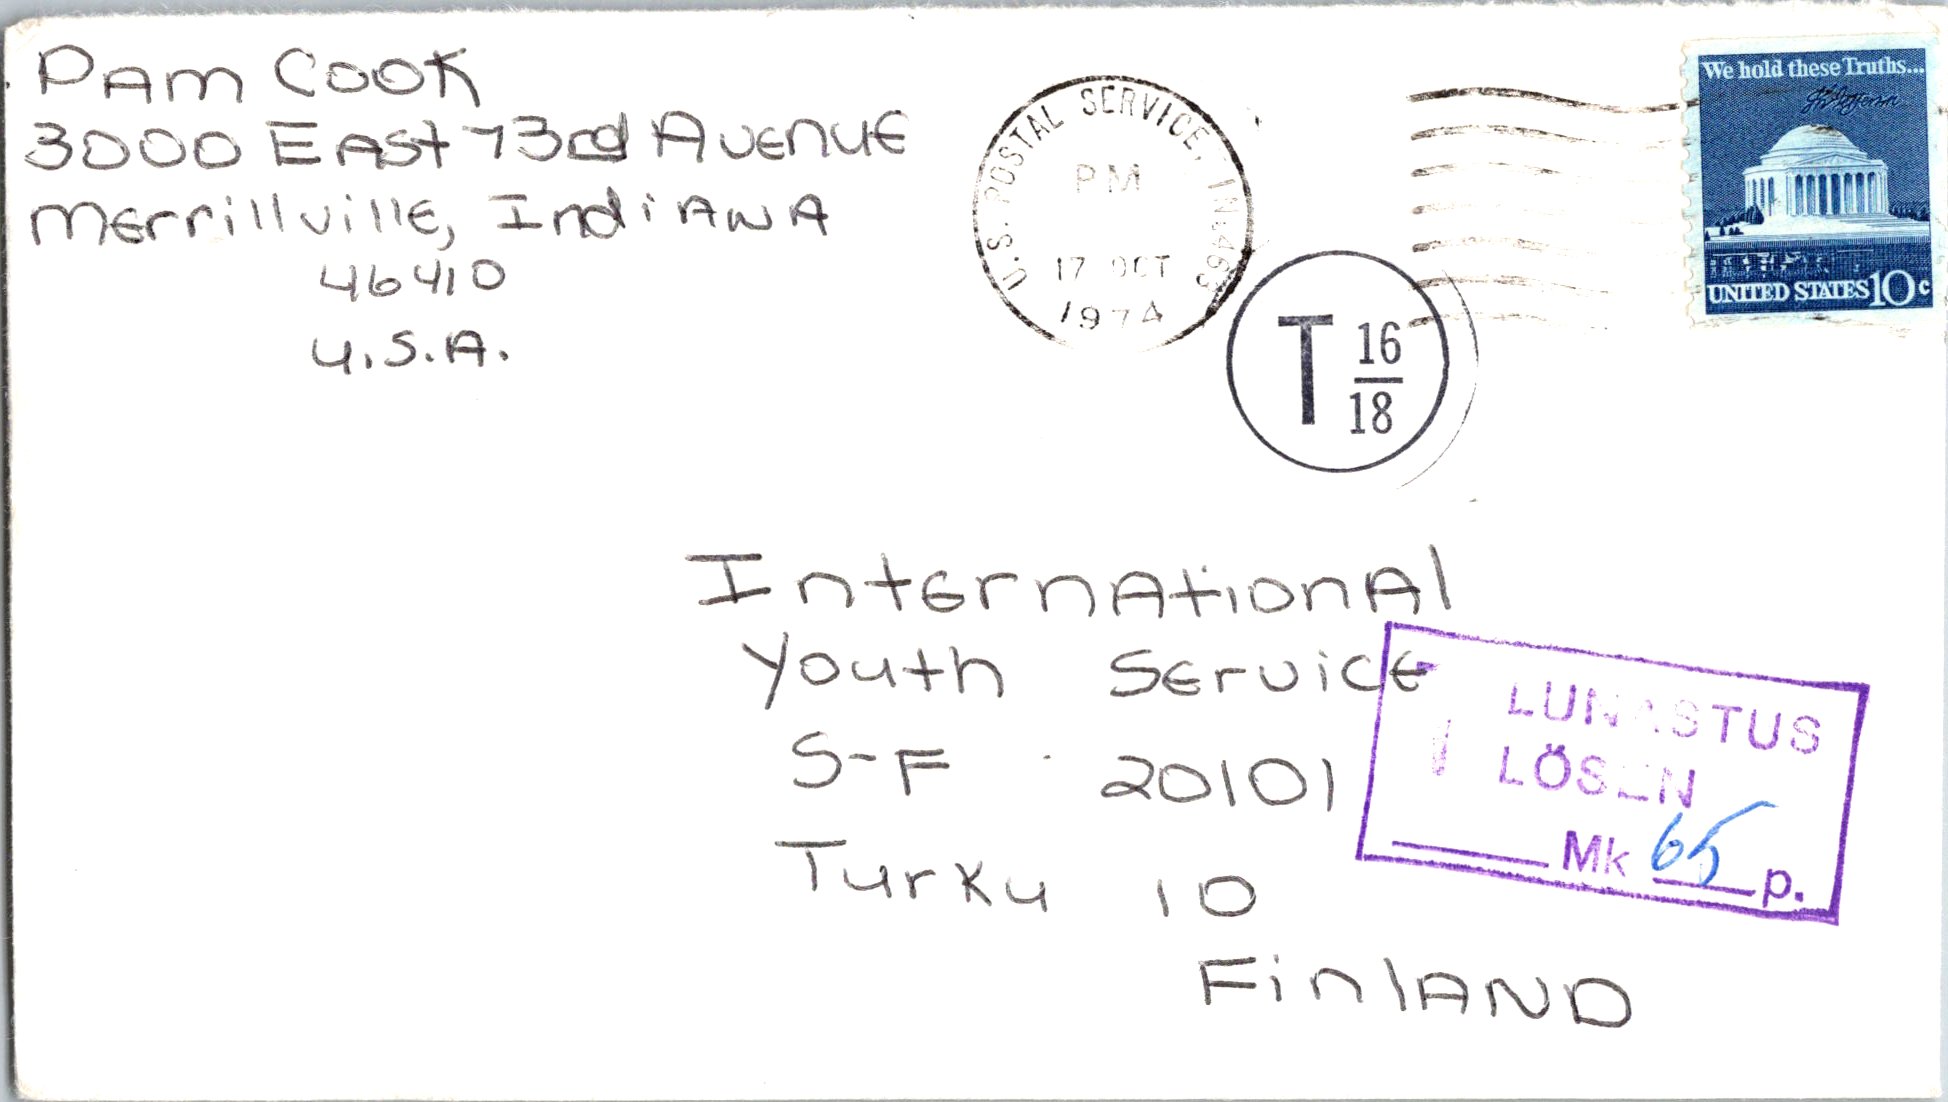 Pam Cook
3000 East 73rd Avenue
Merrillville, Indiana
46410
U.S.A.
U.S. POSTAL SERVICE, IN. 463
PM
17 OCT
1974
We hold these Truths...
Th Jefferson
UNITED STATES 10c
T 16
18
International
Youth Service
S-F 20101
Turku 10
Finland
LUNASTUS
LÖSEN
Mk 65 p.